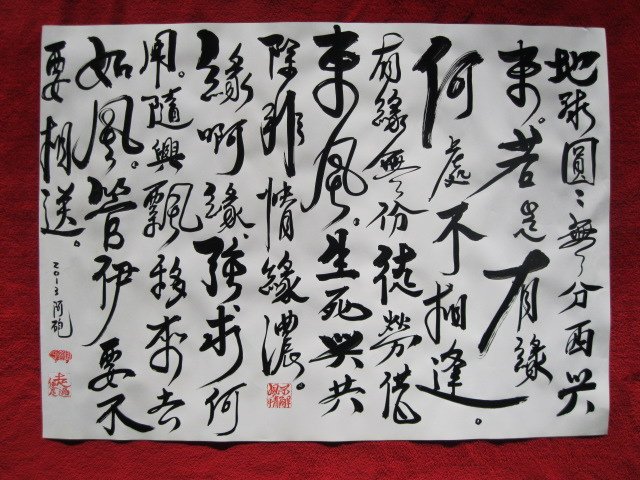 地球圓〻無分西與
東。若是有緣
何處不相逢。
有緣無份徒勞借
東風。生死與共
除非情緣濃。
緣啊緣強求何
用。隨興飄移來去
如風。管伊要不
要相送。
2013 阿砲